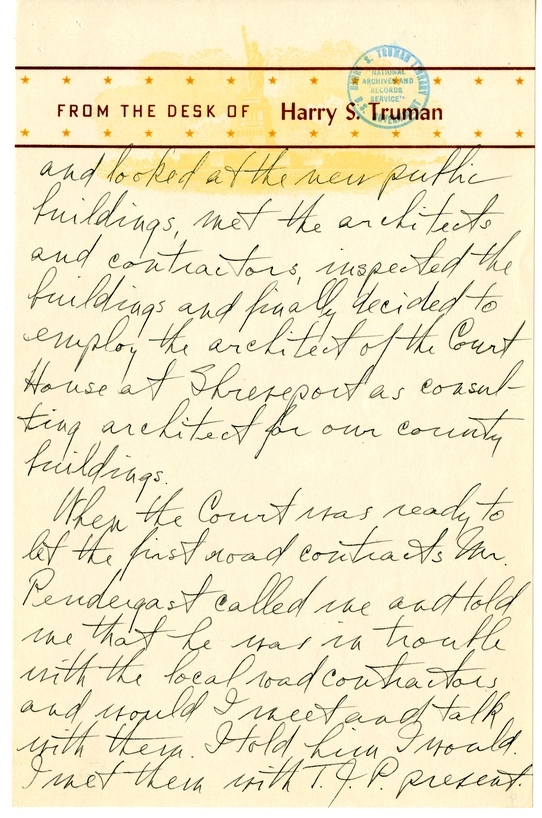 HARRY S. TRUMAN LIBRARY
NATIONAL
ARCHIVES AND
RECORDS
SERVICE
FROM THE DESK OF Harry S. Truman
and looked at the new public
buildings, met the architects
and contractors, inspected the
buildings and finally decided to
employ the architect of the Court
House at Shreveport as consul-
ting architect for our county
buildings.
When the Court was ready to
let the first road contracts Mr.
Pendergast called me and told
me that he was in trouble
with the local road contractors
and would I meet and talk
with them. I told him I would.
I met them with T.J.P. present.